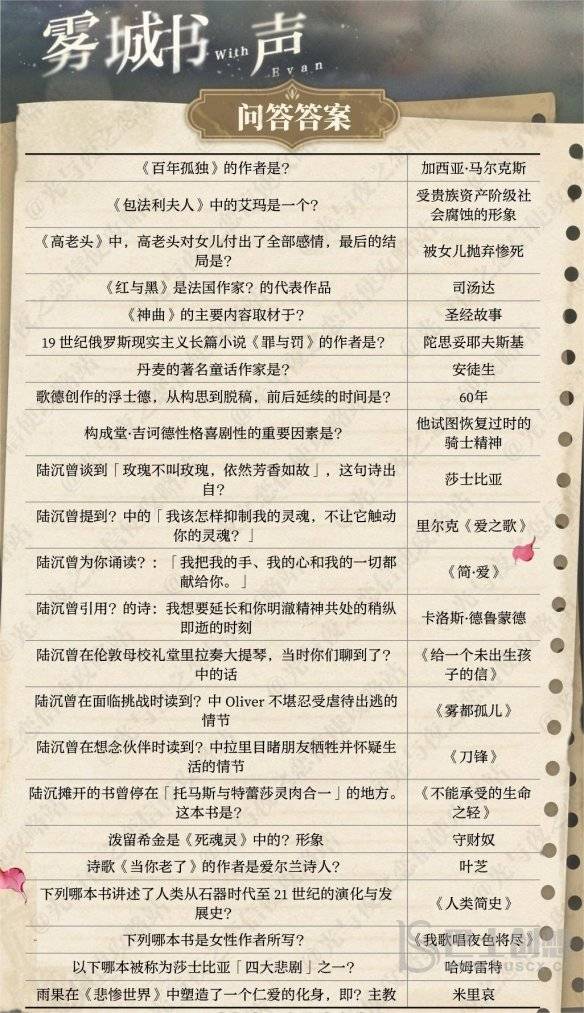 雾城书声
With Evan
问答答案
《百年孤独》的作者是？
加西亚·马尔克斯
《包法利夫人》中的艾玛是一个？
受贵族资产阶级社
会腐蚀的形象
《高老头》中，高老头对女儿付出了全部感情，最后的结
局是？
被女儿抛弃惨死
《红与黑》是法国作家？的代表作品
司汤达
《神曲》的主要内容取材于？
圣经故事
19世纪俄罗斯现实主义长篇小说《罪与罚》的作者是？
陀思妥耶夫斯基
丹麦的著名童话作家是？
安徒生
歌德创作的浮士德，从构思到脱稿，前后延续的时间是？
60年
构成堂·吉诃德性格喜剧性的重要因素是？
他试图恢复过时的
骑士精神
陆沉曾谈到「玫瑰不叫玫瑰，依然芳香如故」，这句诗出
自？
莎士比亚
陆沉曾提到？中的「我该怎样抑制我的灵魂，不让它触动
你的灵魂？」
里尔克《爱之歌》
陆沉曾为你诵读？：「我把我的手、我的心和我的一切都
献给你。」
《简·爱》
陆沉曾引用？的诗：我想要延长和你明澈精神共处的稍纵
即逝的时刻
卡洛斯·德鲁蒙德
陆沉曾在伦敦母校礼堂里拉奏大提琴，当时你们聊到了？
中的话
《给一个未出生孩
子的信》
陆沉曾在面临挑战时读到？中 Oliver 不堪忍受虐待出逃的
情节
《雾都孤儿》
陆沉曾在想念伙伴时读到？中拉里目睹朋友牺牲并怀疑生
活的情节
《刀锋》
陆沉摊开的书曾停在「托马斯与特蕾莎灵肉合一」的地方。
这本书是？
《不能承受的生命
之轻》
泼留希金是《死魂灵》中的？形象
守财奴
诗歌《当你老了》的作者是爱尔兰诗人？
叶芝
下列哪本书讲述了人类从石器时代至21世纪的演化与发
展史？
《人类简史》
下列哪本书是女性作者所写？
《我歌唱夜色将尽》
以下哪本被称为莎士比亚「四大悲剧」之一？
哈姆雷特
雨果在《悲惨世界》中塑造了一个仁爱的化身，即？主教
米里哀